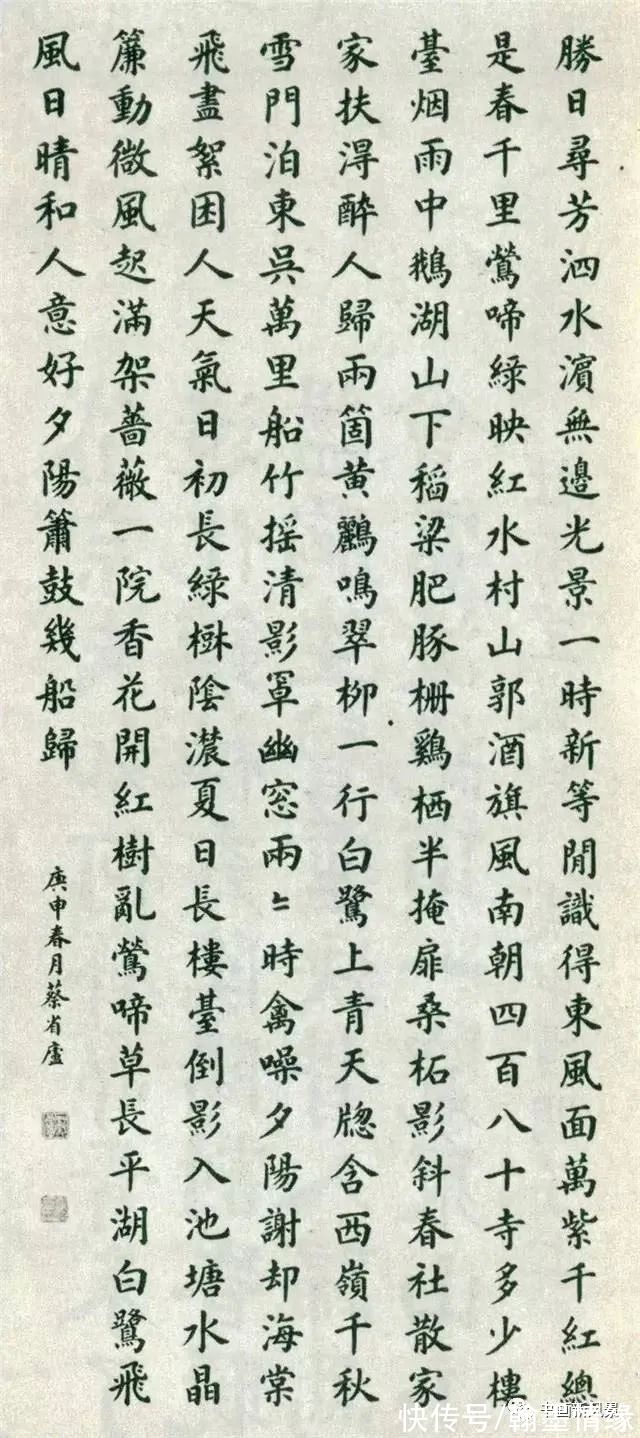 勝日尋芳泗水濱無邊光景一時新等閒識得東風面萬紫千紅總
是春千里鶯啼綠映紅水村山郭酒旗風南朝四百八十寺多少樓
臺烟雨中鵝湖山下稻粱肥豚柵鷄栖半掩扉桑柘影斜春社散家
家扶淂醉人歸兩箇黄鸝鳴翠柳一行白鷺上青天牕含西嶺千秋
雪門泊東吳萬里船竹摇清影罩幽窓兩〻時禽噪夕陽謝却海棠
飛盡絮困人天氣日初長綠樹陰濃夏日長樓臺倒影入池塘水晶
簾動微風起滿架薔薇一院香花開紅樹亂鶯啼草長平湖白鷺飛
風日晴和人意好夕陽簫鼓幾船歸
庚申春月蔡省廬
快传号/翰墨情缘